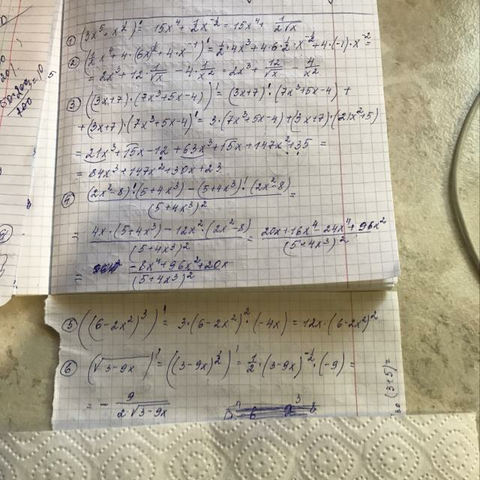 ① (3x⁵ + x^½)' = 15x⁴ + ½x^-½ = 15x⁴ + 1/(2√x)
② (½x⁴ + 4·(6x)^½ + 4·x⁻¹)' = ½·4x³ + 4·6·½·x^-½ + 4·(-1)·x⁻² =
= 2x³ + 12·1/√x - 4·1/x² = 2x³ + 12/√x - 4/x²
③ ((3x+7)·(7x³+5x-4))' = (3x+7)'·(7x³+5x-4) +
+ (3x+7)·(7x³+5x-4)' = 3·(7x³+5x-4) + (3x+7)·(21x²+5)
= 21x³ + 15x - 12 + 63x³ + 15x + 147x² + 35 =
= 84x³ + 147x² + 30x + 23
④ ((2x²-8)'·(5+4x³) - (5+4x³)'·(2x²-8))/(5+4x³)² =
= (4x·(5+4x³) - 12x²·(2x²-8))/(5+4x³)² = (20x+16x⁴-24x⁴+96x²)/(5+4x³)²
= (-8x⁴+96x²+20x)/(5+4x³)²
⑤ ((6-2x²)³)' = 3·(6-2x²)²·(-4x) = 12x·(6-2x²)²
⑥ (√3-9x)' = ((3-9x)^½)' = ½·(3-9x)^-½·(-9) =
= - 9/(2√3-9x)